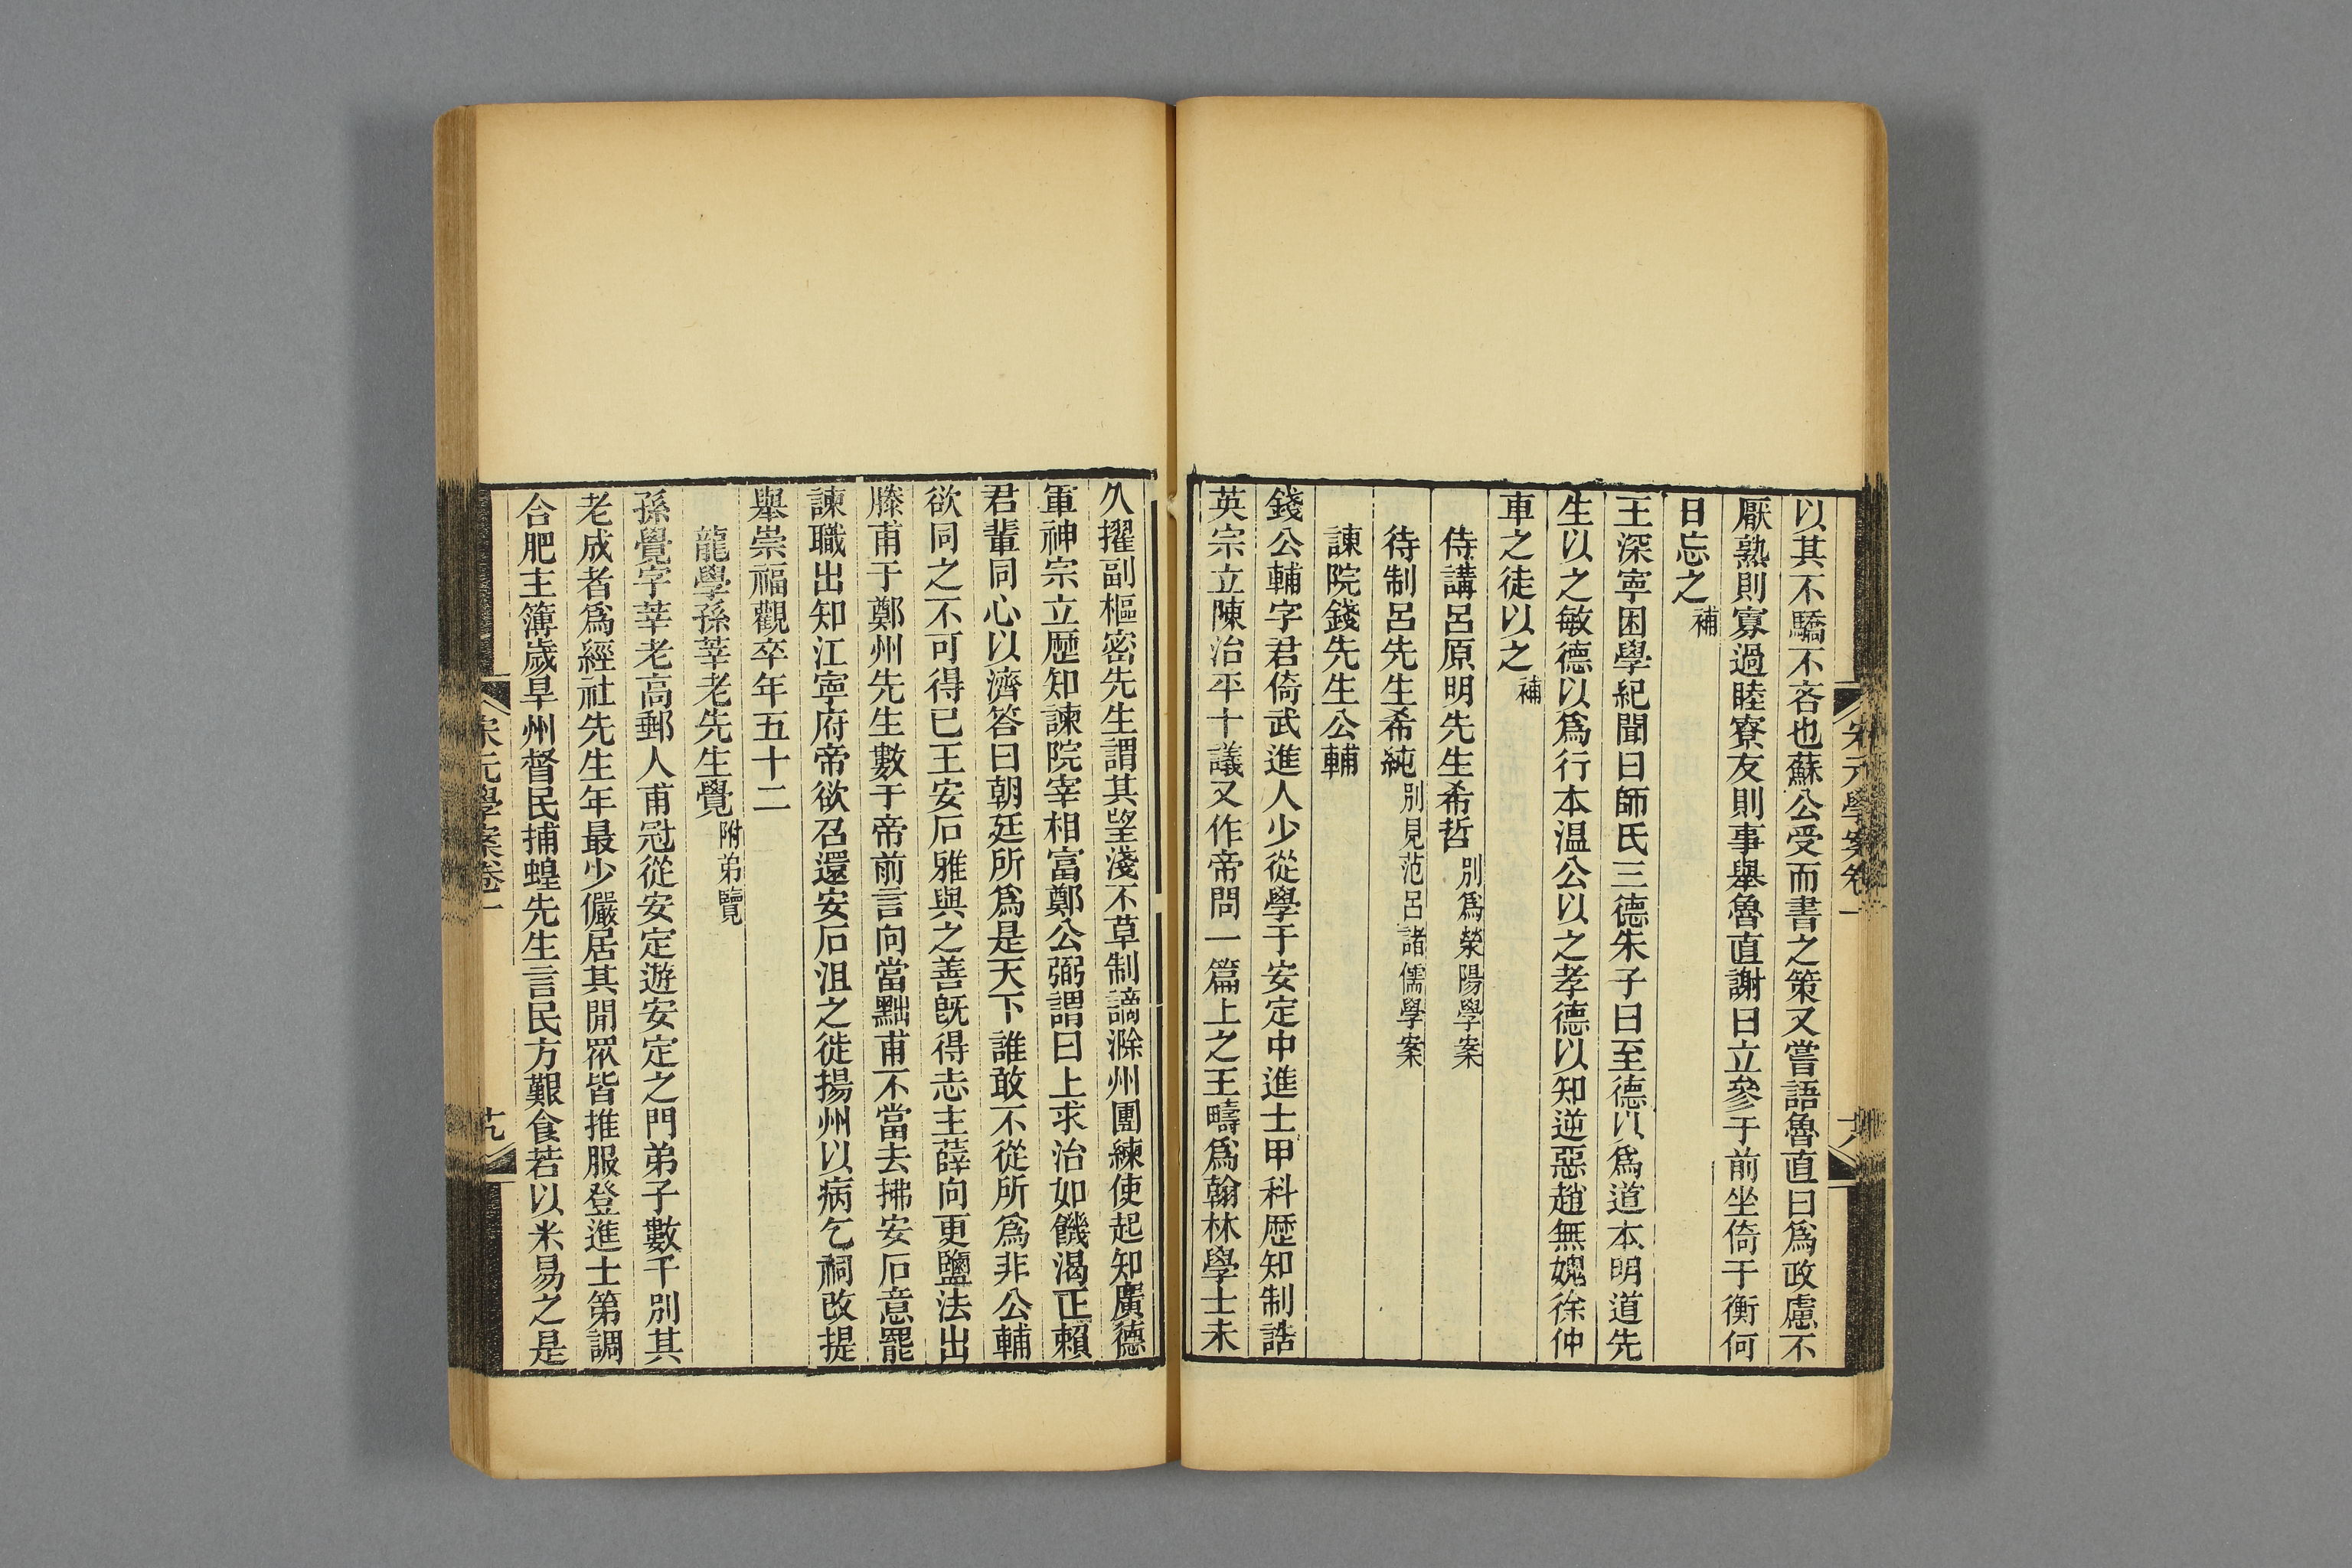 宋元學案卷一
六
以其不驕不吝也蘇公受而書之策又嘗語魯直曰爲政慮不
厭熟則寡過睦寮友則事舉魯直謝曰立參于前坐倚于衡何
日忘之補
王深寧困學紀聞曰師氏三德朱子曰至德以爲道本明道先
生以之敏德以爲行本温公以之孝德以知逆惡趙無媿徐仲
車之徒以之補
侍講呂原明先生希哲別爲滎陽學案
待制呂先生希純別見范呂諸儒學案
諫院錢先生公輔
錢公輔字君倚武進人少從學于安定中進士甲科歷知制誥
英宗立陳治平十議又作帝問一篇上之王疇爲翰林學士未
久擢副樞密先生謂其望淺不草制謫滁州團練使起知廣德
軍神宗立歷知諫院宰相富鄭公弼謂曰上求治如饑渴正賴
君輩同心以濟答曰朝廷所爲是天下誰敢不從所爲非公輔
欲同之不可得已王安石雅與之善旣得志主薛向更鹽法出
滕甫于鄭州先生數于帝前言向當黜甫不當去拂安石意罷
諫職出知江寧府帝欲召還安石沮之徙揚州以病乞祠改提
舉崇福觀卒年五十二
龍學孫莘老先生覺附弟覽
孫覺字莘老高郵人甫冠從安定遊安定之門弟子數千別其
老成者爲經社先生年最少儼居其閒眾皆推服登進士第調
合肥主簿歲旱州督民捕蝗先生言民方艱食若以米易之是
宋元學案卷一
九